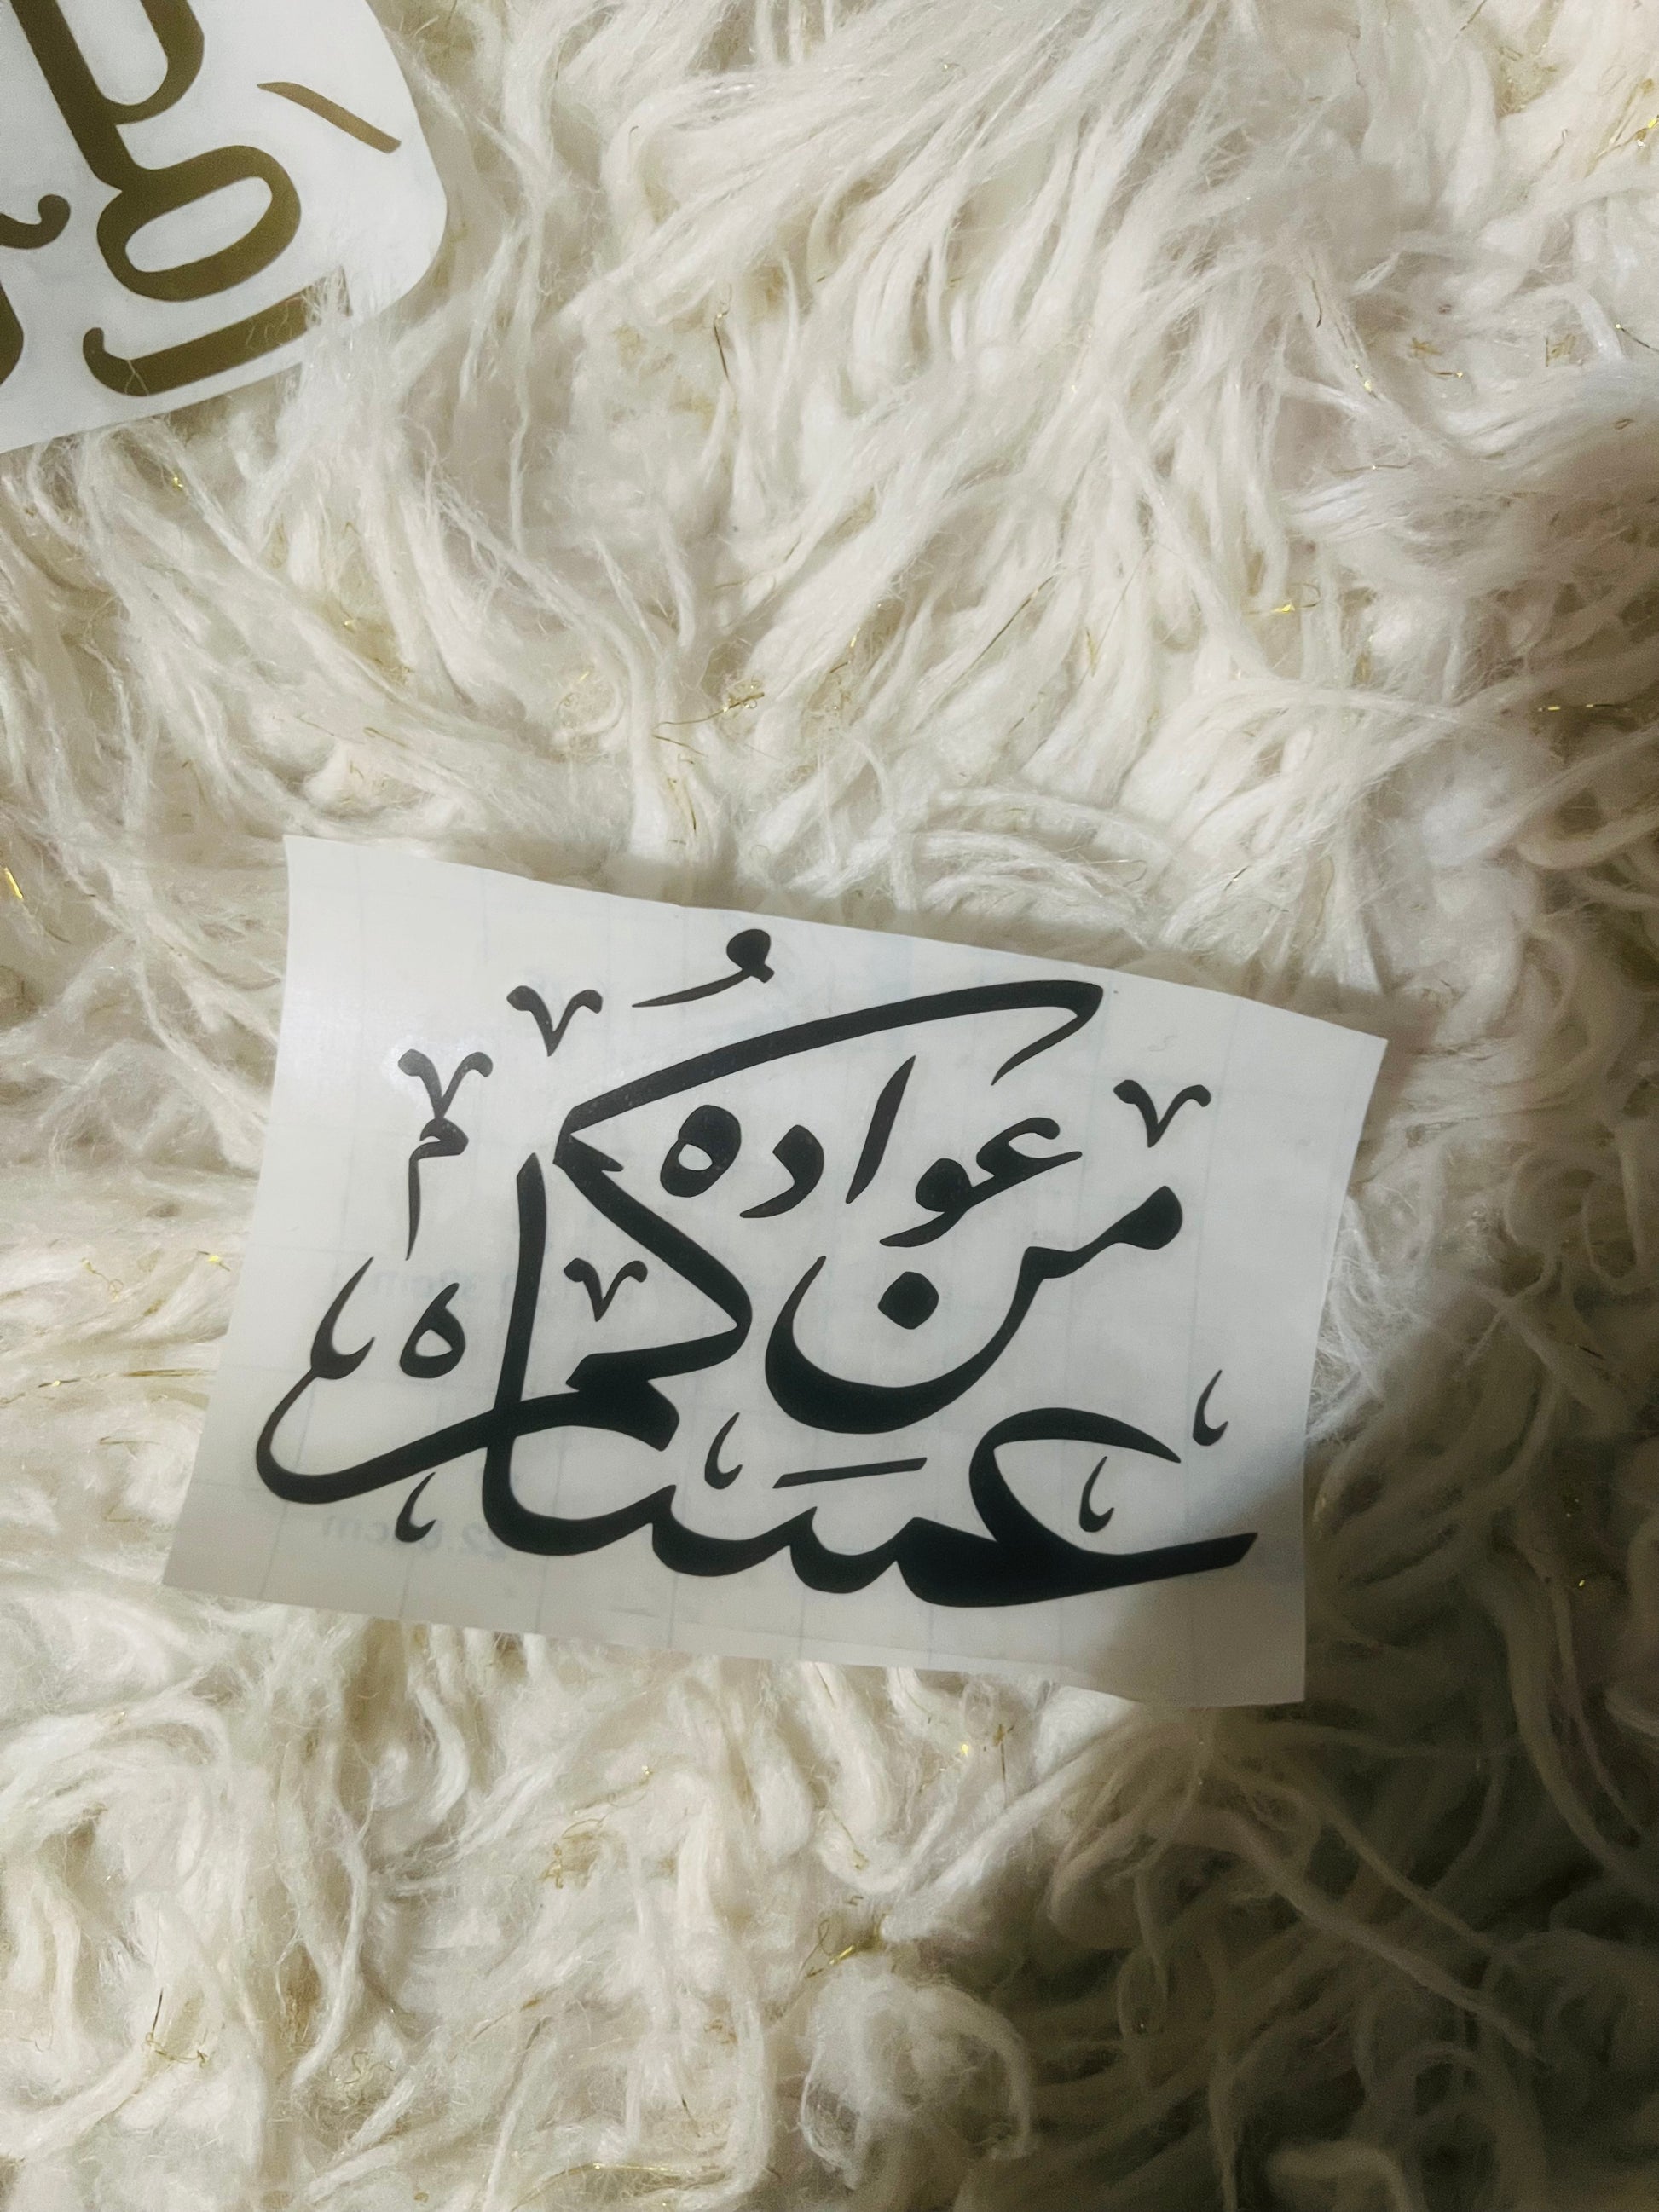 عساكم من عواده